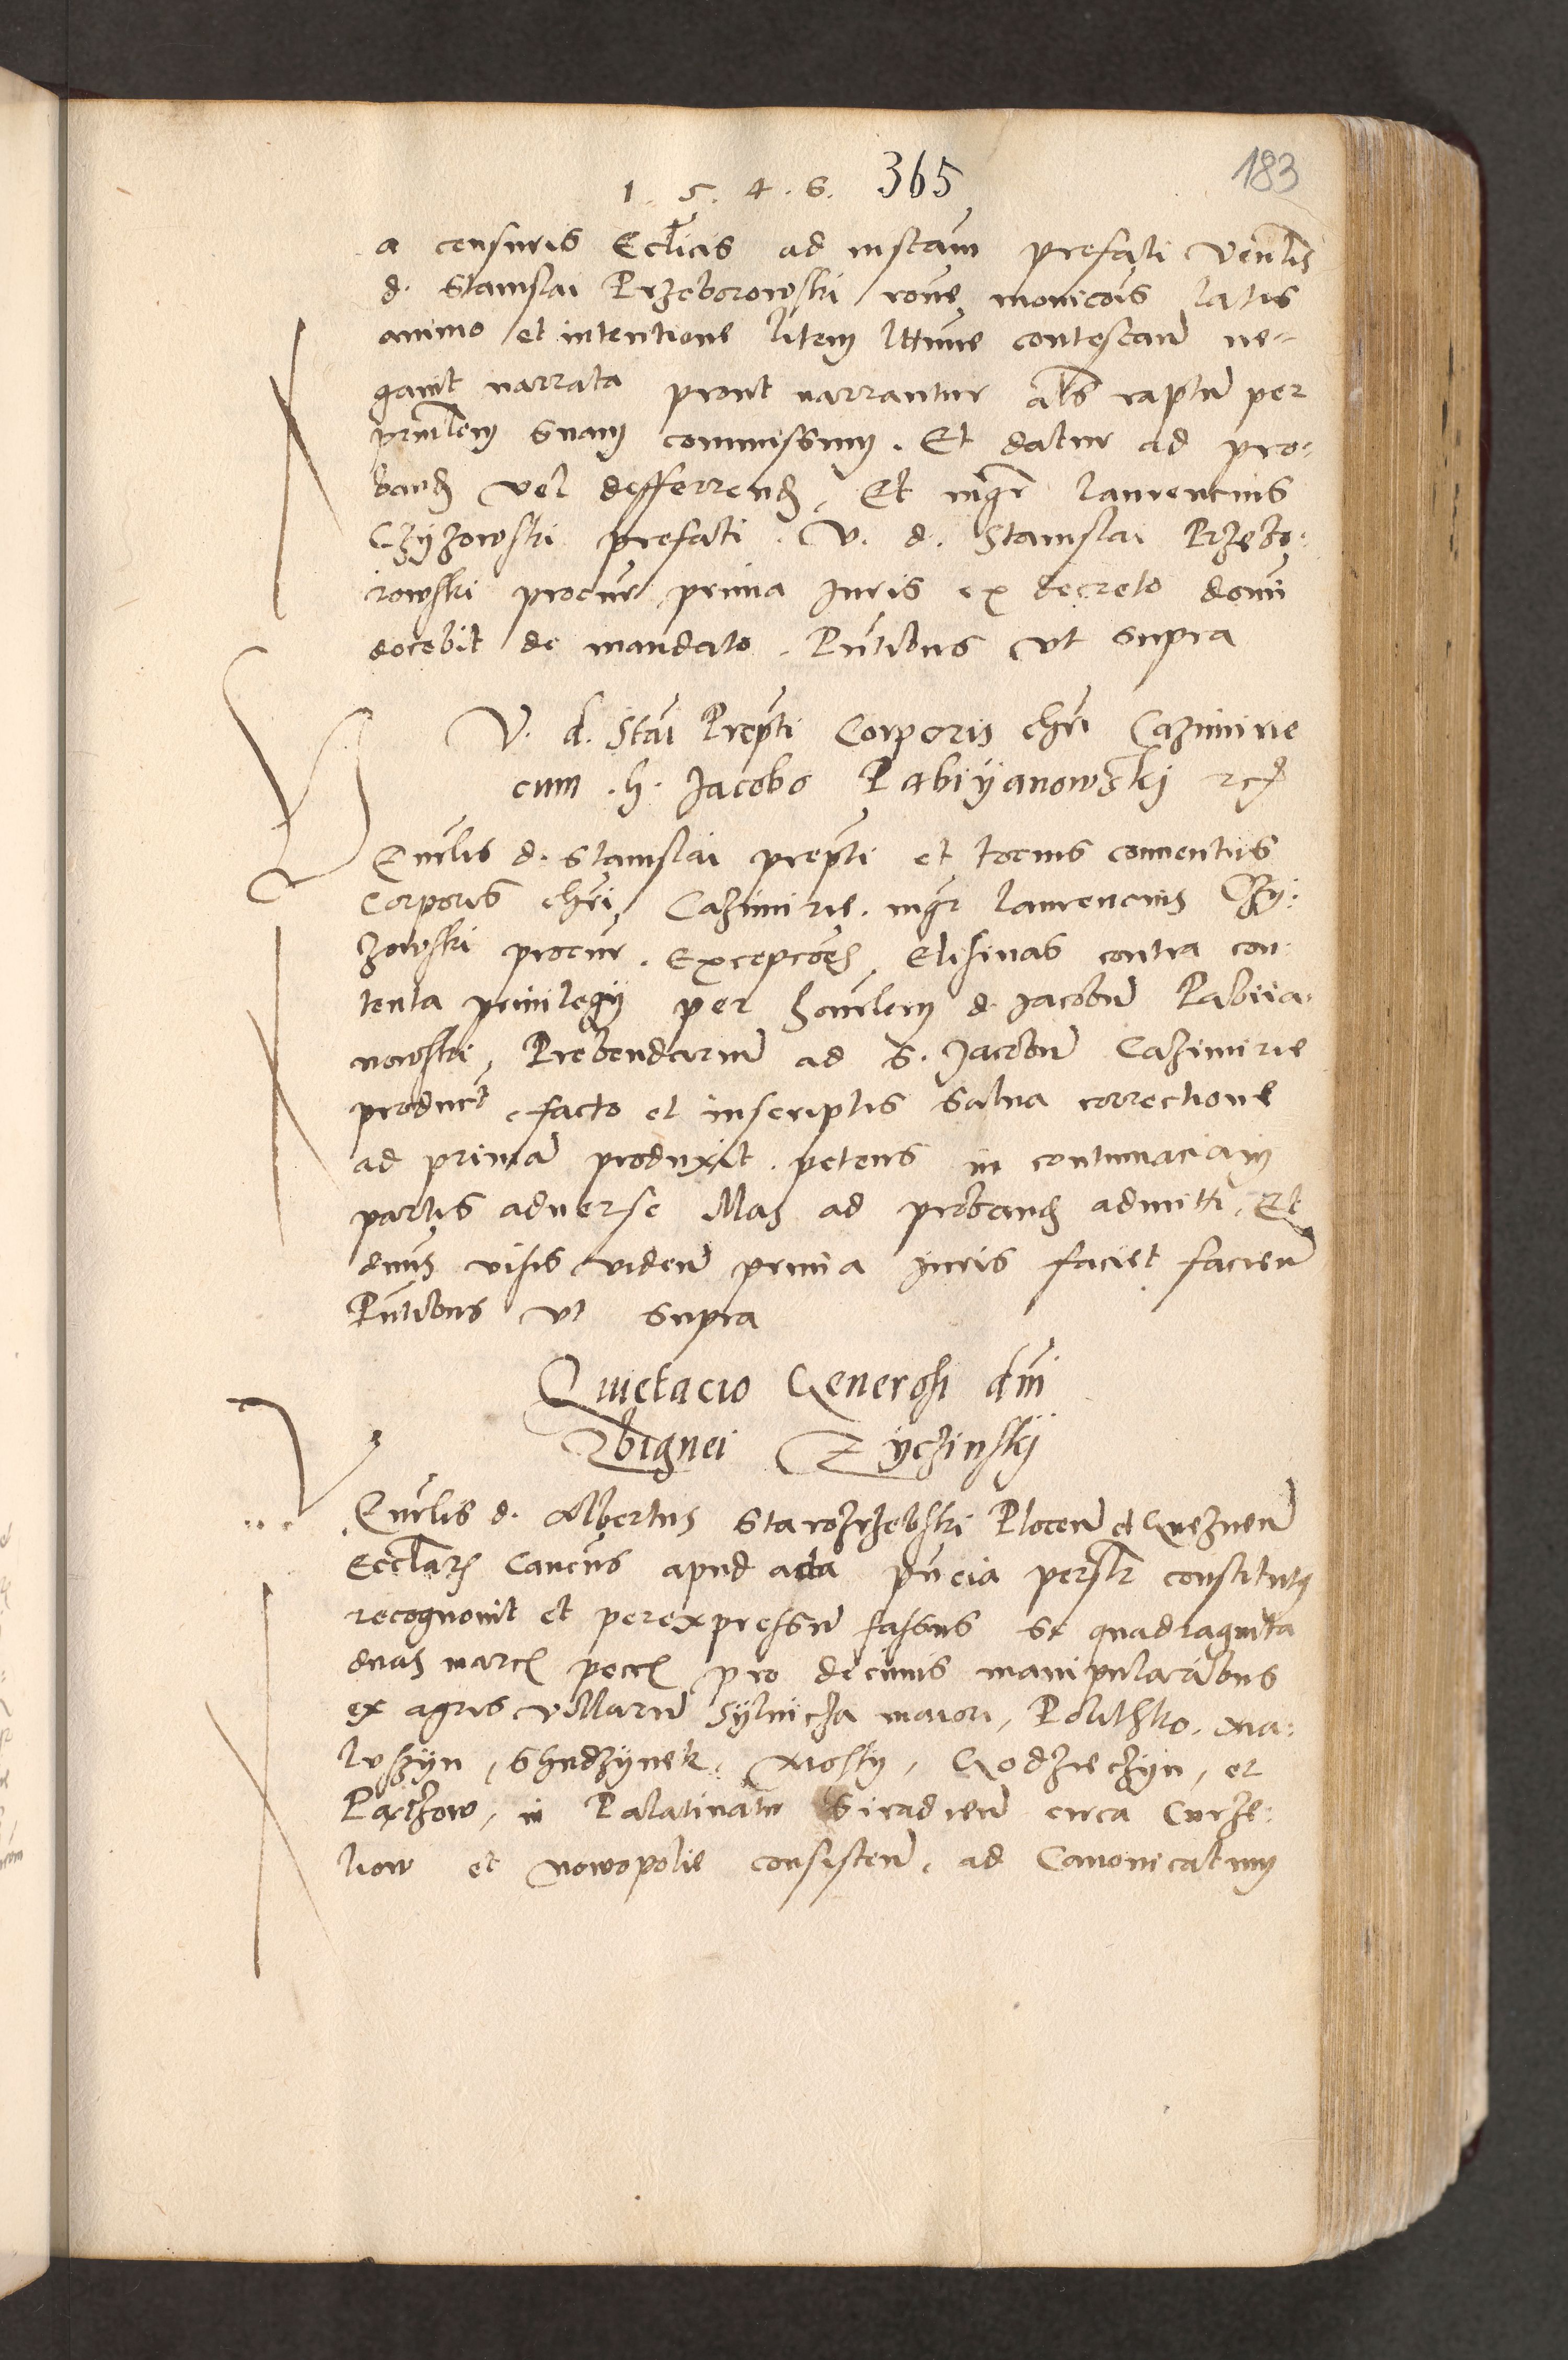 1. 5. 4. 6. 365
183
a censuris Eccliticis ad instam prefati venlis
d. Stanislai Przeborowski rone monicois latis
animo et intentione litem lttime contestand ne-
gavit narrata prout narrantur als raptu per
prinlem suam commissum. Et datur ad pro-
band vel defferrend, Et mgr laurencius
Czyzowski prefati. V. d. Stanislai Przebo-
rowski procur prima Juris ex decreto domi
docebit de mandato. Pntibus vt supra
V. d. Stai Prepti Corporis chri Cazimirie
cum . h. Jacobo Pabiyanowskj
Venrlis d. Stanislai prepti et tocius conventus
Corporis chri Cazimirie. mgr laurencius Czy-
zowski procur. Excepcoes Elisivas contra con-
tenta privilegij per honrlem d. Jacobu Pabiia-
nowski, Prebendariu ad S. Jacobu Cazimirie
product, facto et inscriptis salva correctione
ad prima produxit. petens in contumaciam
partis adverse illas ad proband admitti, Et
dnus visis videnn prima juris faciet faciend
Pntibus vt supra
Quietacio Generosi dni
Zbignei Zyczinskj
Venrlis d. Albertus Starozrzebski Plocen et Gneznen
Ecclaru Cancus apud acta pncia persr constitutus
recognovit et per expressu fassus se quadraginta
duas marc pecc pro decimis manipularibus
ex agris villaru Sylnicza maiori, Politzko, Ma-
luszyn, Shudzynek, Mosty, Godziechyn, et
Paczzow, in Palatinatu Siradien circa Curze-
liow et nowopolie consisten, ad Canonicatum